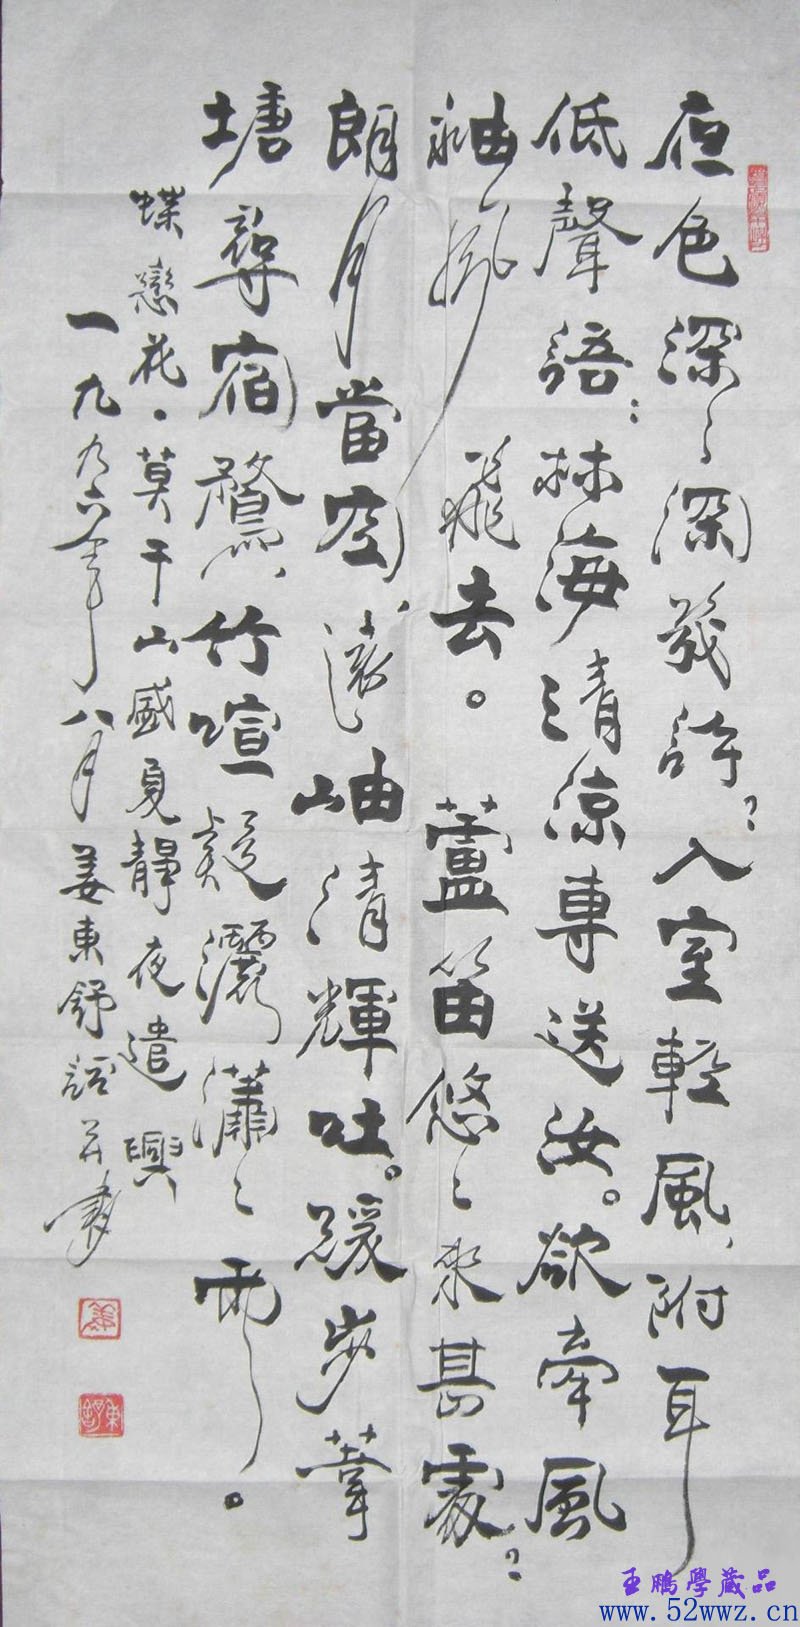 夜色深〻深幾許？入室輕風，附耳
低聲語：林海清涼專送汝。欲牽風
袖風飛去。蘆笛悠〻來甚處？
朗月當空，遠岫清輝吐。緩步葦
塘尋宿鷺，竹喧疑灑瀟〻雨。
蝶戀花·莫干山盛夏靜夜遣興
一九九六年八月姜東舒并書
王鵬學藏品
www.52wwz.cn